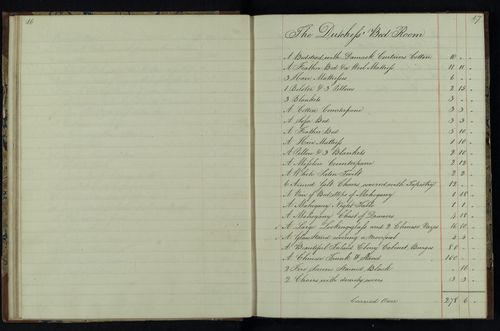 16
17
The Dutchess' Bed Room
A Bedstead with Damask Curtains Cotton 10 " "
A Feather Bed & a Wool Mattress 11 11 "
3 Hair Mattresses 6 " "
1 Bolster & 3 Pillows 2 15
3 Blankets 3 "
A Cotton Counterpane 3 3
A Sofa Bed 3 3
A Feather Bed 5 10
A Hair Mattress 1 10
A Pillow & 3 Blankets 2 10
A Counterpane 2 12
A White Quilt 2 2
6 Armed Gilt Chairs covered with Tapestry 12
A Pair of Bedsteps of Mahogany 1 10
A Mahogany Night Table 1 1
A Mahogany Chest of Drawers 4 10
A Large Lookingglass and 2 Chinese Vases 16 10
A Glass Stand 2 2
A Beautiful Inlaid Ebony Cabinet 80 "
A Chinese Trunk & Stand 160
2 Fire Screens Stained Black " 10
2 Chairs with covers 3 3
Carried Over 278 6